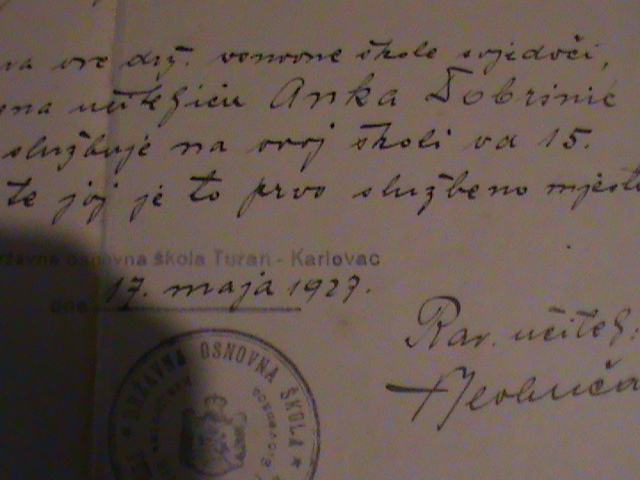 ove drž. osnovne škole svjedoči,
učiteljicu Anka Dobrinić
službuje na ovoj školi od 15.
te joj je to prvo službeno mjesto
osnovna škola Turan - Karlovac
dne 17. maja 1927.
Rav. učitelj:
DRŽAVNA OSNOVNA ŠKOLA